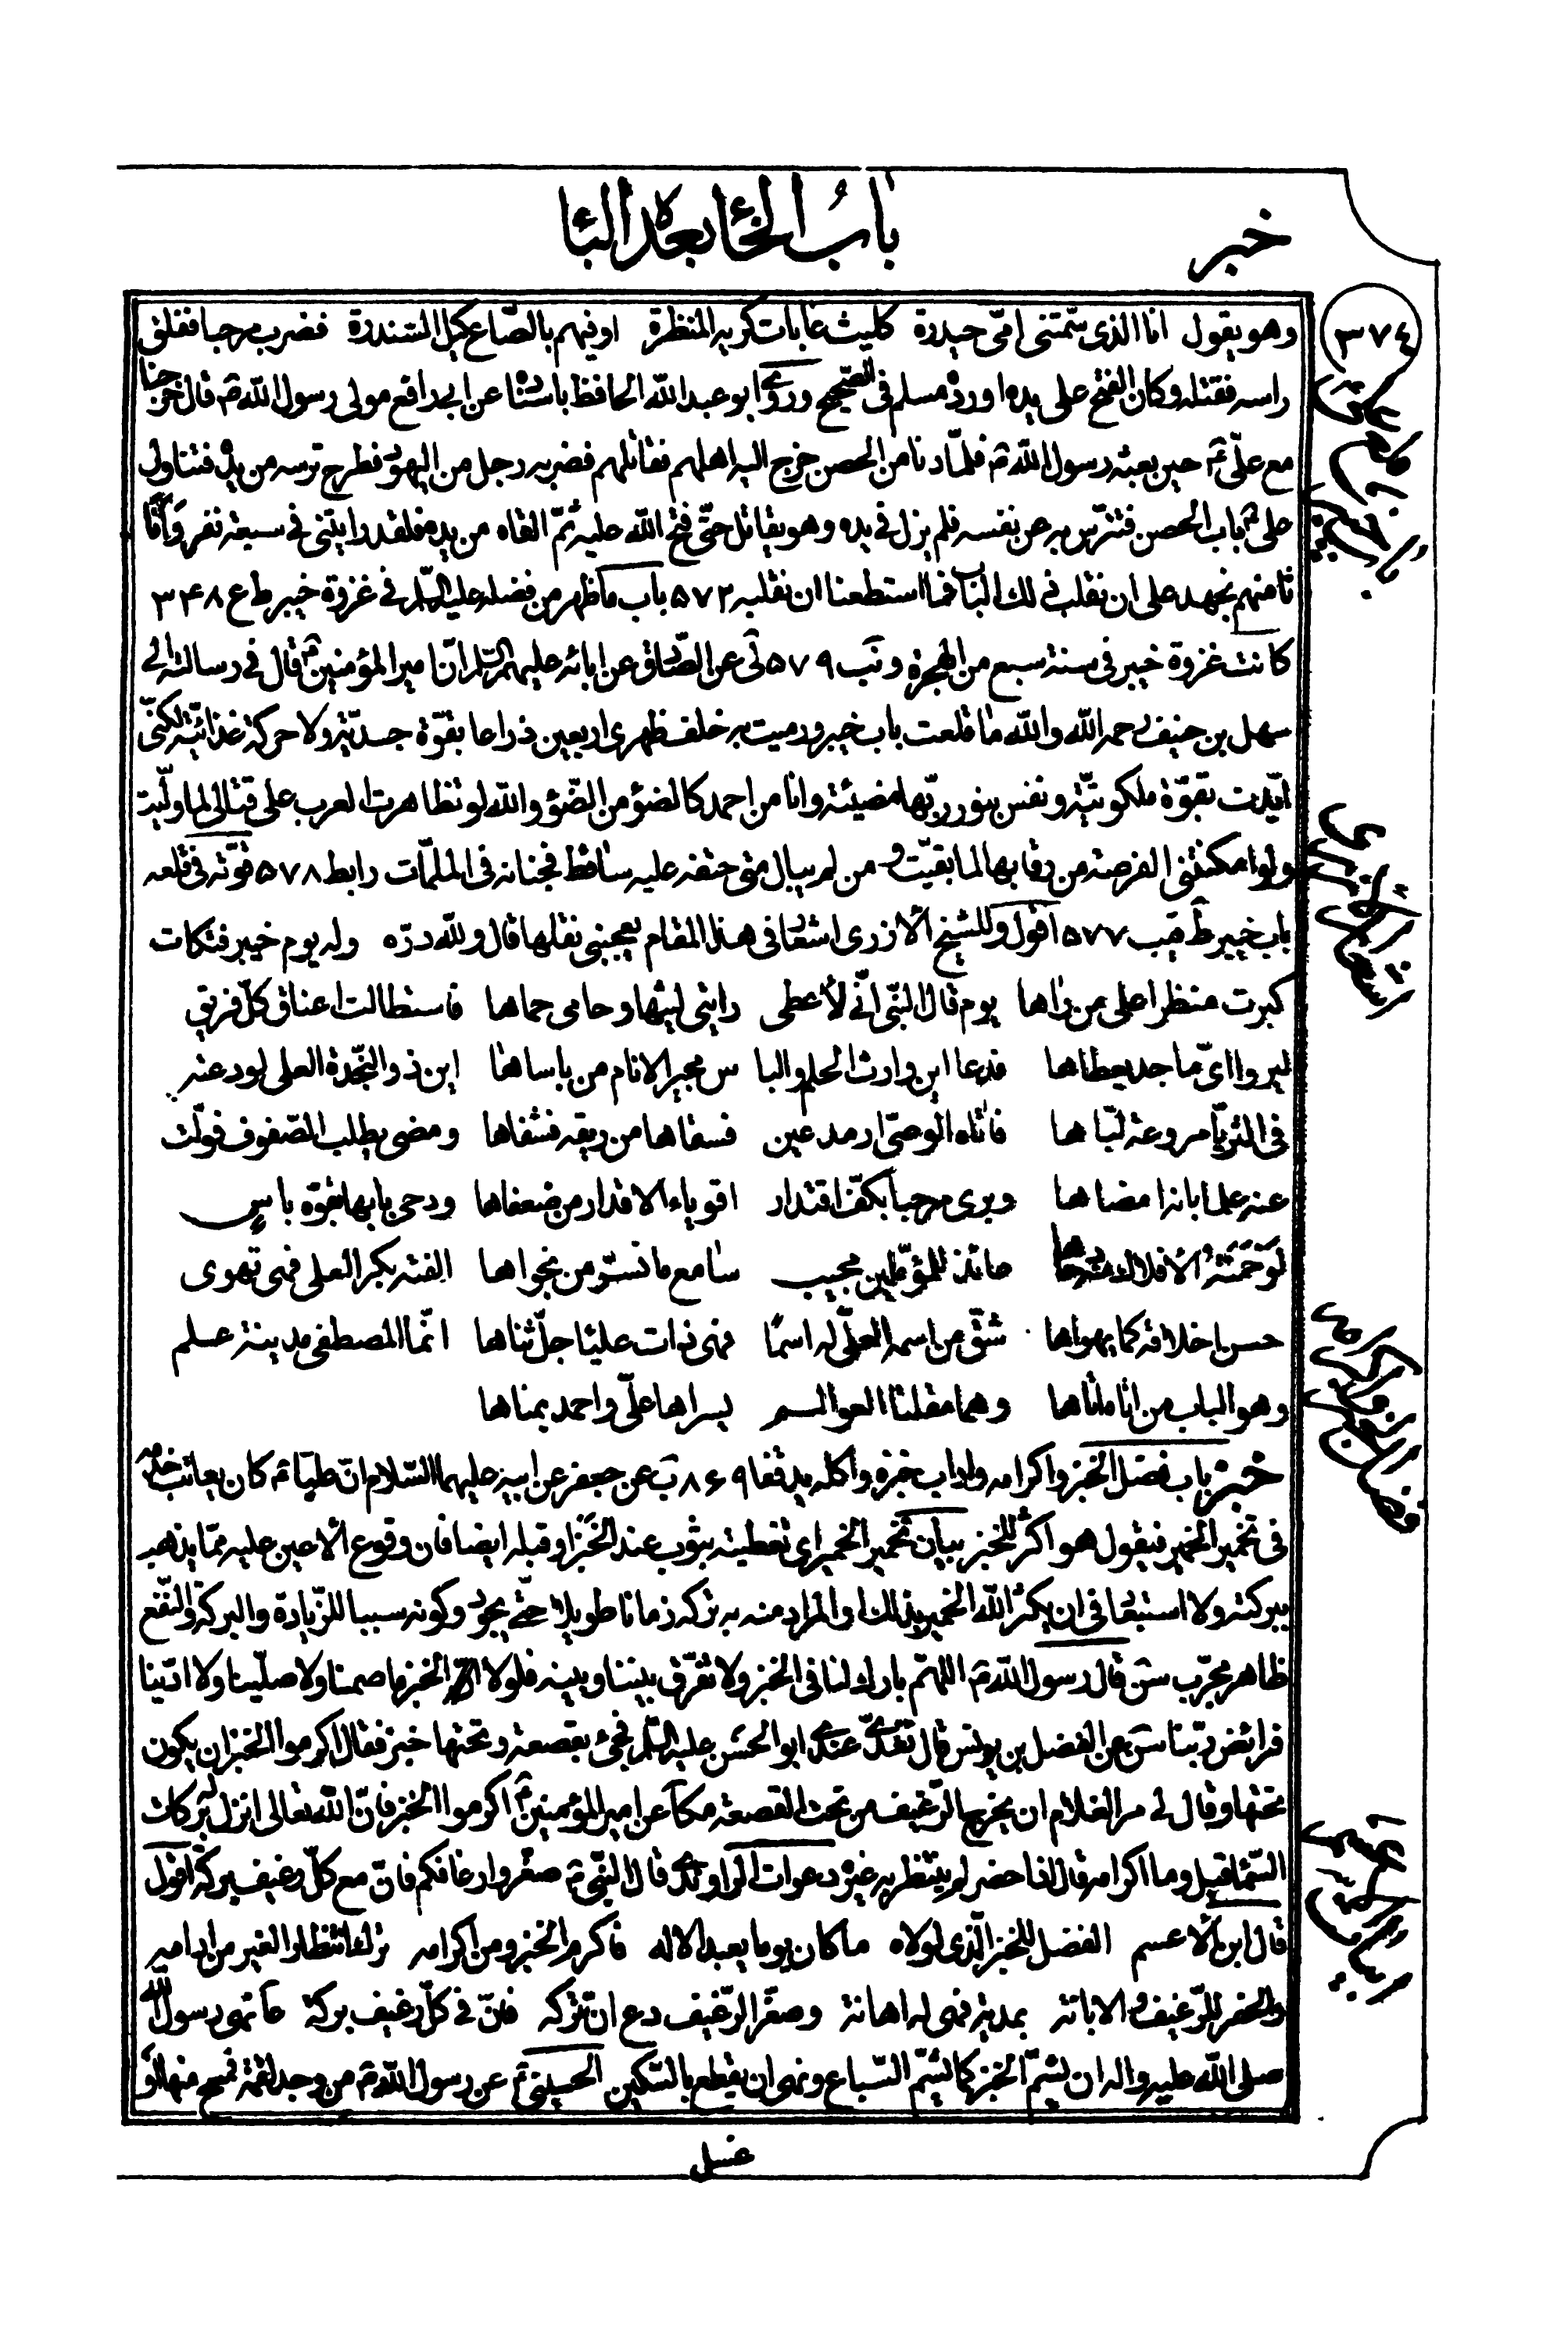 خبر
باب الخاء بعده الباء
٣٧٤
وهو يقول انا الذى سمّتنى امّى حيدرة كليث غابات كريه المنظرة اوفيهم بالصّاع كيل السّندرة فضرب مرحبا ففلق
راسه فقتله وكان الفتح على يده اورده مسلم فى الصّحيح وروى ابو عبد الله الحافظ باسناده عن ابى رافع مولى رسول الله ص قال خرجنا
مع علىّ ع حين بعثه رسول الله ص فلمّا دنا من الحصن خرج اليه اهلهم فقاتلهم فضربه رجل من اليهود فطرح ترسه من يده فتناول
على ع باب الحصن فتترّس به عن نفسه فلم يزل فى يده وهو يقاتل حتّى فتح الله عليه ثمّ القاه من يده فلقد رايتنى فى سبعة نفر وانا
ثامنهم نجهد على ان نقلب ذلك الباب فما استطعنا ان نقلبه ٥٧٢ باب ما ظهر من فضله عليه السّلم فى غزوة خيبر ط ع ٣٤٨
كانت غزوة خيبر فى سنة سبع من الهجرة ونب ٥٧٩ لى عن الصّادق عن ابائه عليهم السّلم انّ امير المؤمنين ع قال فى رسالته الى
سهل بن حنيف رحمه الله والله ما قلعت باب خيبر ورميت به خلف ظهرى اربعين ذراعا بقوّة جسديّة ولا حركة غذائيّة لكنّى
ايّدت بقوّة ملكوتيّة ونفس بنور ربّها مضيئة وانا من احمد كالضوء من الضّوء والله لو تظاهرت العرب على قتالى لما ولّيت
ولو امكنتنى الفرصة من رقابها لما بقيّت ومن لم يبال متى حتفه عليه ساقط فجنانه فى الملمّات رابط ٥٧٨ قوّته فى قلعه
باب خيبر ط قيب ٥٧٧ اقول وللشيخ الازرى اشعار فى هذا المقام يعجبنى نقلها قال ولله درّه وله يوم خيبر فتكات
كبرت منظرا على من راها يوم قال النبّى انّى لاعطى رايتى ليثها وحامى حماها فاستطالت اعناق كلّ فريق
ليروا اىّ ماجد يعطاها فدعا اين وارث الحلم والباس مجير الانام من باساها اين ذو النّجدة العلى لو دعته
فى الثريّا مروعة لبّاها فاتاه الوصىّ ارمد عين فسقاها من ريقه فشفاها ومضى يطلب الصّفوف فولّت
عنه علما بانه امضاها وبرى مرحبا بكفّ اقتدار اقوياء الاقدار من ضعفاها ودحى بابها بقوّة باس
لو حمته الافلاك منه دحاها عائذ للمؤمّلين مجيب سامع ما تسرّ من نجواها الفته بكر العلى فهى تهوى
حسن اخلاقه كما يهواها شقّ من اسمه العلىّ له اسما فهى ذات علياء جلّ ثناها انّما المصطفى مدينة علم
وهو الباب من اتاه اتاها وهما مقلتا العوالم يسراها علىّ واحمد يمناها
خبز باب فضل الخبز واكرامه واداب خبزه واكله يد قفا ٨٦٩ ب عن جعفر عن ابيه عليهما السّلام انّ عليّا ع كان يعاتب خدمه
فى تخمير الخمير فيقول هو اكثر للخبز بيان تخمير الخمير اى تغطيته بثوب عند الخبز او قبله ايضا فان وقوع الاعين عليه ممّا يذهب
ببركته ولا استبعاد فى ان يكثر الله الخمير بذلك او المراد منه به تركه زمانا طويلا حتّى يجود وكونه سببا للزّيادة والبركة والنّفع
ظاهر مجرّب سن قال رسول الله ص اللهمّ بارك لنا فى الخبز ولا تفرّق بيننا وبينه فلولا الخبز ما صمنا ولا صلّينا ولا ادّينا
فرائض ربّنا سن عن الفضل بن يونس قال تغدّى عندى ابو الحسن عليه السّلم فجىء بقصعة وتحتها خبز فقال اكرموا الخبز ان يكون
تحتها وقال لى مر الغلام ان يخرج الرّغيف من تحت القصعة مكا عن امير المؤمنين ع اكرموا الخبز فانّ الله تعالى انزل له بركات
السّماء قيل وما اكرامه قال اذا حضر لم ينتظر به غيره دعوات الراوندى قال النّبى ص صغّروا رغافكم فانّ مع كلّ رغيف بركة اقول
قال ابن الاعسم الفضل للخبز الّذى لولاه ما كان يوما يعبد الاله فاكرم الخبز ومن اكرامه ترك انتظار الغير من ادامه
والحفر للرّغيف والابانة بمدية فهى له اهانة وصغّر الرّغيف دع ان تتركه فانّ فى كلّ رغيف بركة نهى رسول الله
صلى الله عليه واله ان يشمّ الخبز كما يشمّ السّباع ونهى ان يقطع بالسّكين الحسينى ع عن رسول الله ص من وجد لقمة فمسح منها او
غسل